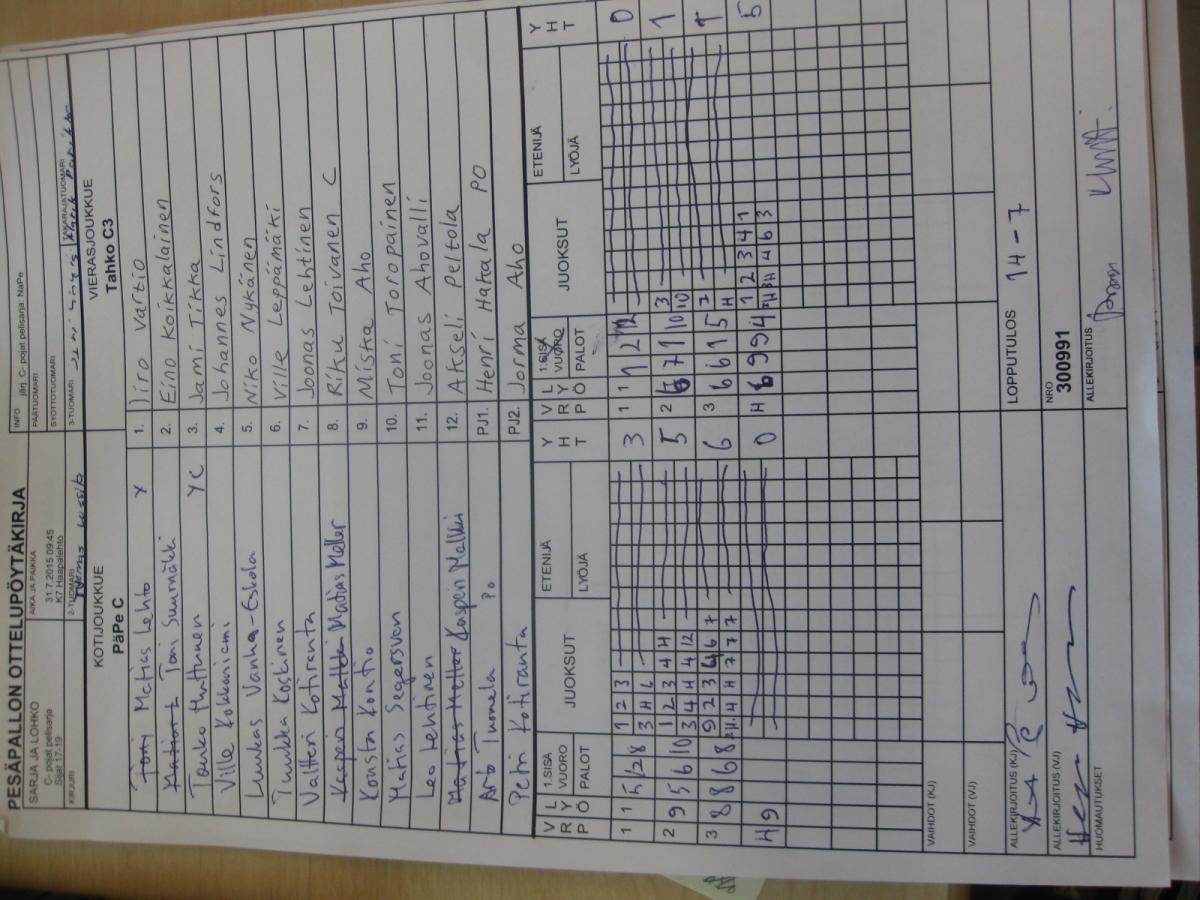 PESÄPALLON OTTELUPÖYTÄKIRJA
SARJA JA LOHKO
C- pojat pelisarja
Sijat 17-19
AIKA JA PAIKKA
31.7.2015 09:45
K7 Haapalehto
INFO järj. C- pojat pelisarja: NaPe
PÄÄTUOMARI
SYÖTTÖTUOMARI
KIRJURI
2-TUOMARI
3-TUOMARI
TAKARAJATUOMARI
KOTIJOUKKUE
PäPe C
VIERASJOUKKUE
Tahko C3
Toni Matias Lehto Y
1. Iiro Vartio
Toni Suurmäki
2. Eino Koikkalainen
Touko Huttunen YC
3. Jami Tikka
Ville Kokkoniemi
4. Johannes Lindfors
Luukas Vanha-Eskola
5. Niko Nykänen
Tuukka Koskinen
6. Ville Leppämäki
Valtteri Kotiranta
7. Joonas Lehtinen
Kasperi Malkki Matias Heller
8. Riku Toivanen C
Konsta Kontio
9. Miska Aho
Matias Segersvon
10. Toni Toropainen
Leo Lehtinen
11. Joonas Ahovalli
Matias Heller Kasperi Malkki
12. Akseli Peltola
Arto Tuomela PO
PJ1. Henri Hakala PO
Petri Kotiranta
PJ2. Jorma Aho
V R P
L Y Ö
1.SISÄ VUORO
PALOT
JUOKSUT
ETENIJÄ
LYÖJÄ
Y H T
V R P
L Y Ö
1.SISÄ VUORO
PALOT
JUOKSUT
ETENIJÄ
LYÖJÄ
Y H T
1 1 5 12 8 1 2 3 3
3 4 6
1 1 1 2 12 0
2 9 5 6 10 1 2 3 4 4 5
3 4 4 4 12
2 6 7 1 10 3 1
10
3 8 8 6 8 9 2 3 4 6 7 6
4 4 7 7 7
3 6 6 1 5 7 1
4
4 9 0
4 6 9 9 4 1 2 3 4 1 5
4 6 3
VAIHDOT (KJ)
VAIHDOT (VJ)
ALLEKIRJOITUS (KJ)
LOPPUTULOS 14-7
ALLEKIRJOITUS (VJ)
NRO
300991
HUOMAUTUKSET
ALLEKIRJOITUS